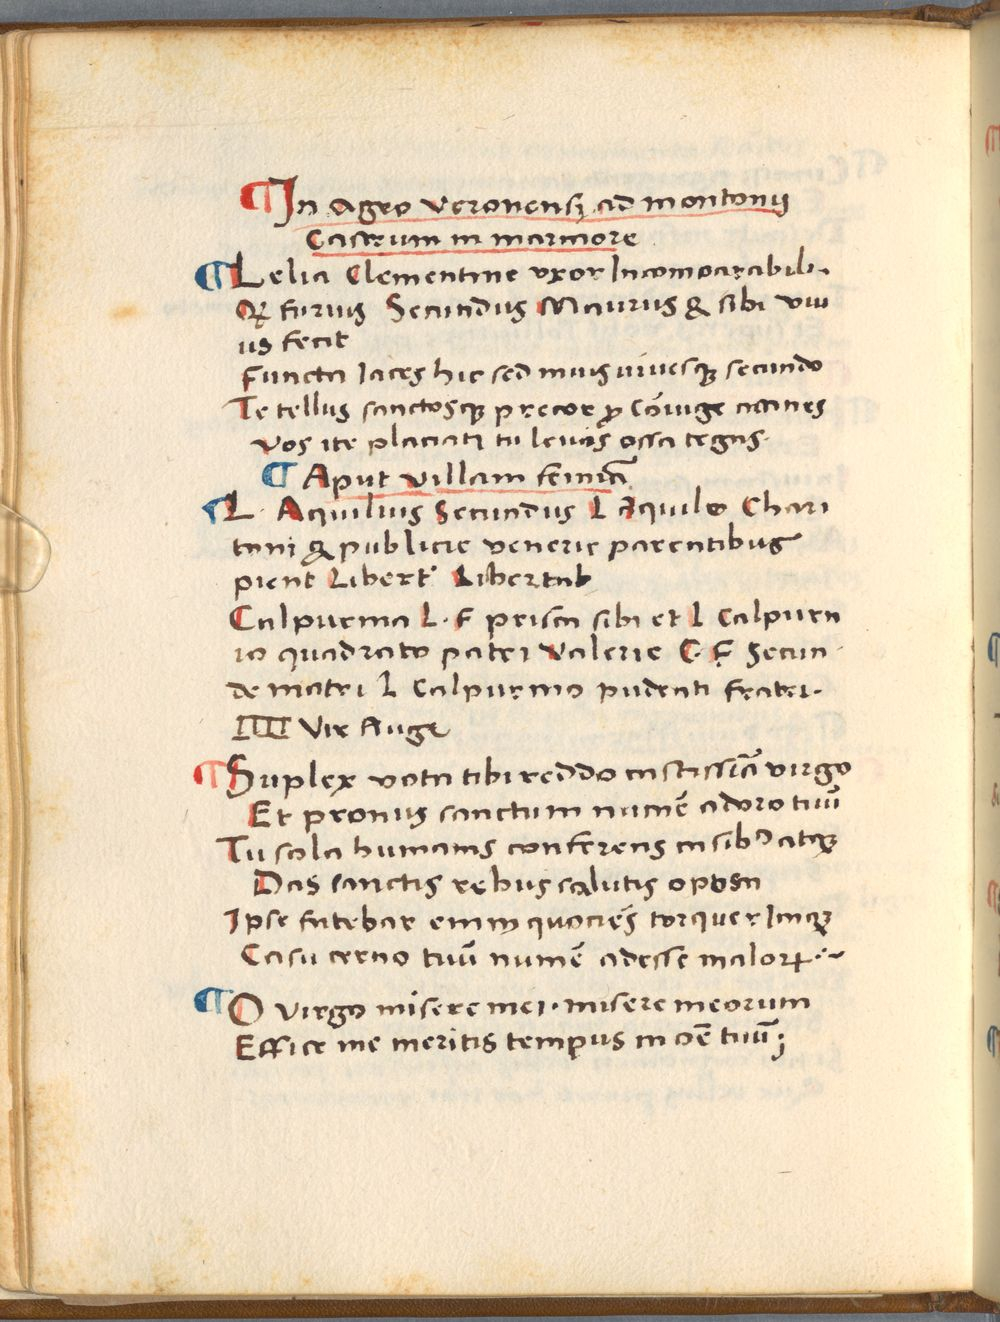 ¶ In agro veronensi ad montonii
Castrum in marmore
¶ Lelia Clementine vxor Incomparabili.
Q furius Secundus Maurus & sibi viu
us fecit
functa iaces hic sed
Te tellus sanctosq; precor p cōiuge manes
Vos ite placati tu leuis ossa tegas.
¶ Aput villam
L. Aquilius Secundus L Aquilo Chari
toni & publicie venerie parentibus
pient Libert. Libertab
Calpurnia L. F prisca sibi et L Calpurn
io quadrato patri Valerie C. F. Secun
de matri L Calpurnio pudenti fratri.
IIIII Vir Auge
¶ Suplex vota tibi reddo castissīa virgo
Et pronus sanctum numē adoro tuū
Tu sola humanis conferens
Das sanctis rebus salutis opem
Ipse fatebar enim quociēs torquer Iniq;
Casu cerno tuū numē adesse malor
¶ O virgo misere mei. misere meorum
Effice me meritis tempus in oē tuū;